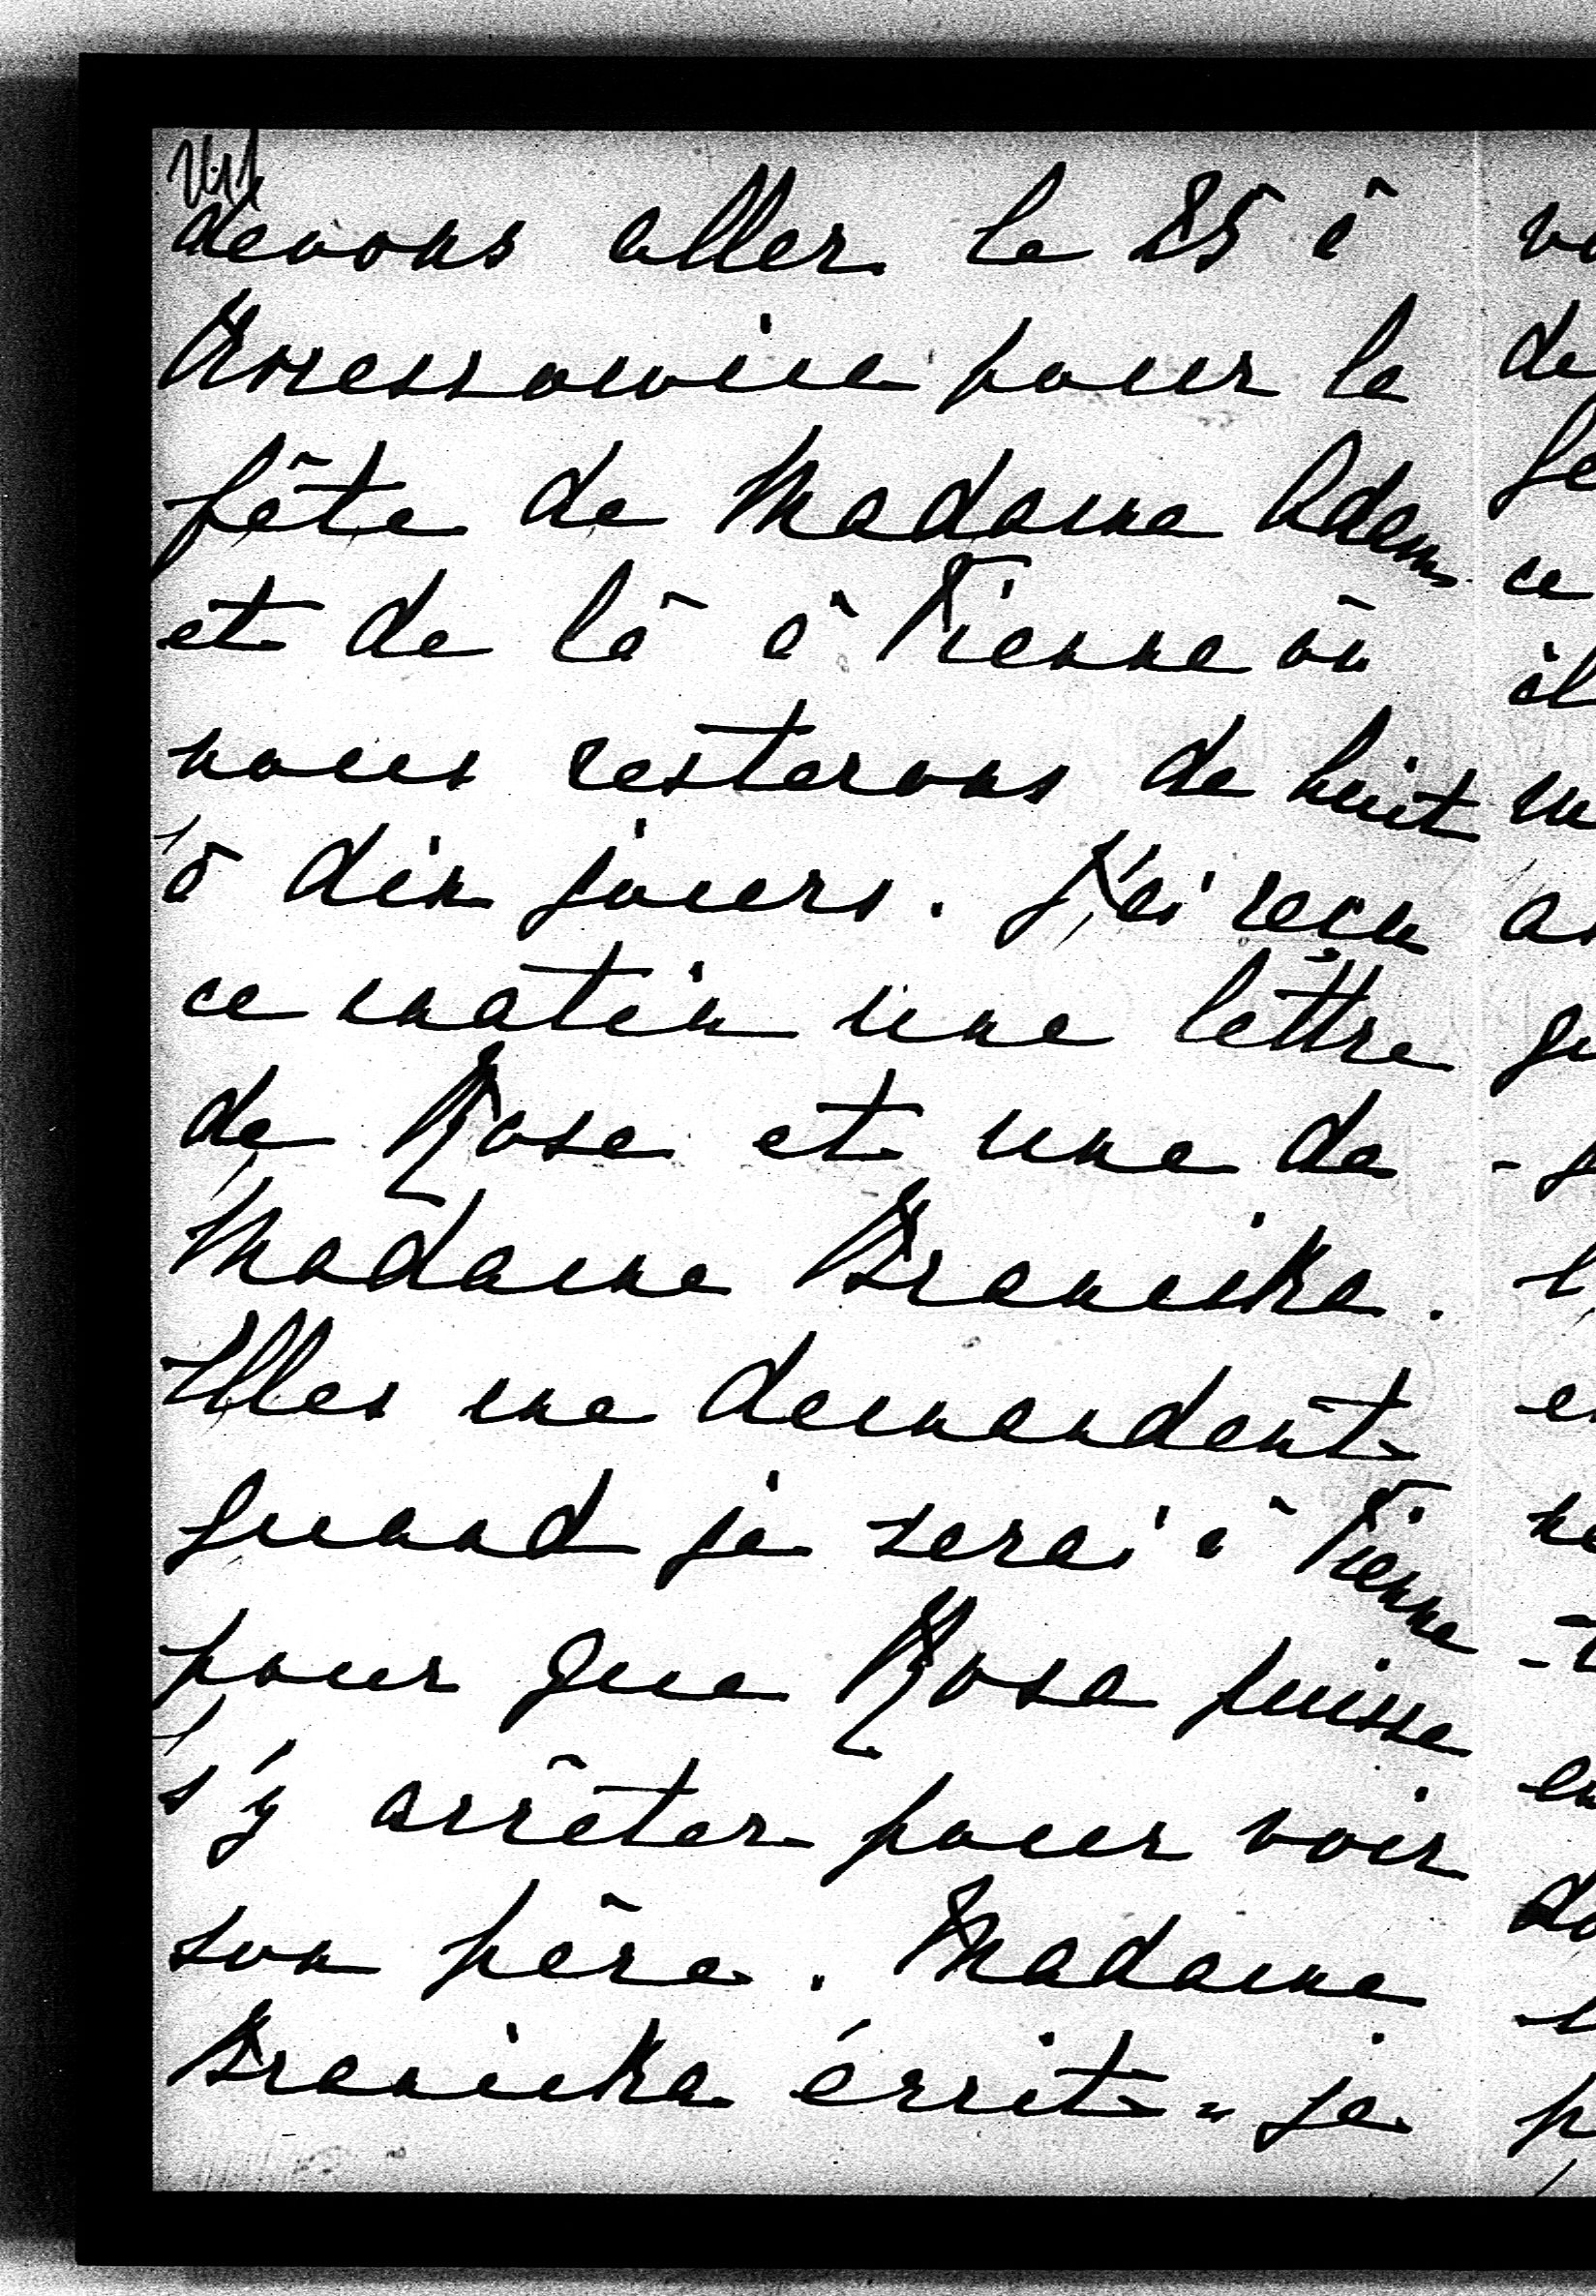 devons aller le 25 à
Krzeszowice pour la
fête de Madame Adam
et de là à Vienne où
nous resterons de huit
à dix jours. J'ai reçu
ce matin une lettre
de Rose et une de
Madame Branicka.
Elles me demandent
quand je serai à Vienne
pour que Rose puisse
s'y arrêter pour voir
son père. Madame
Branicka écrit " je